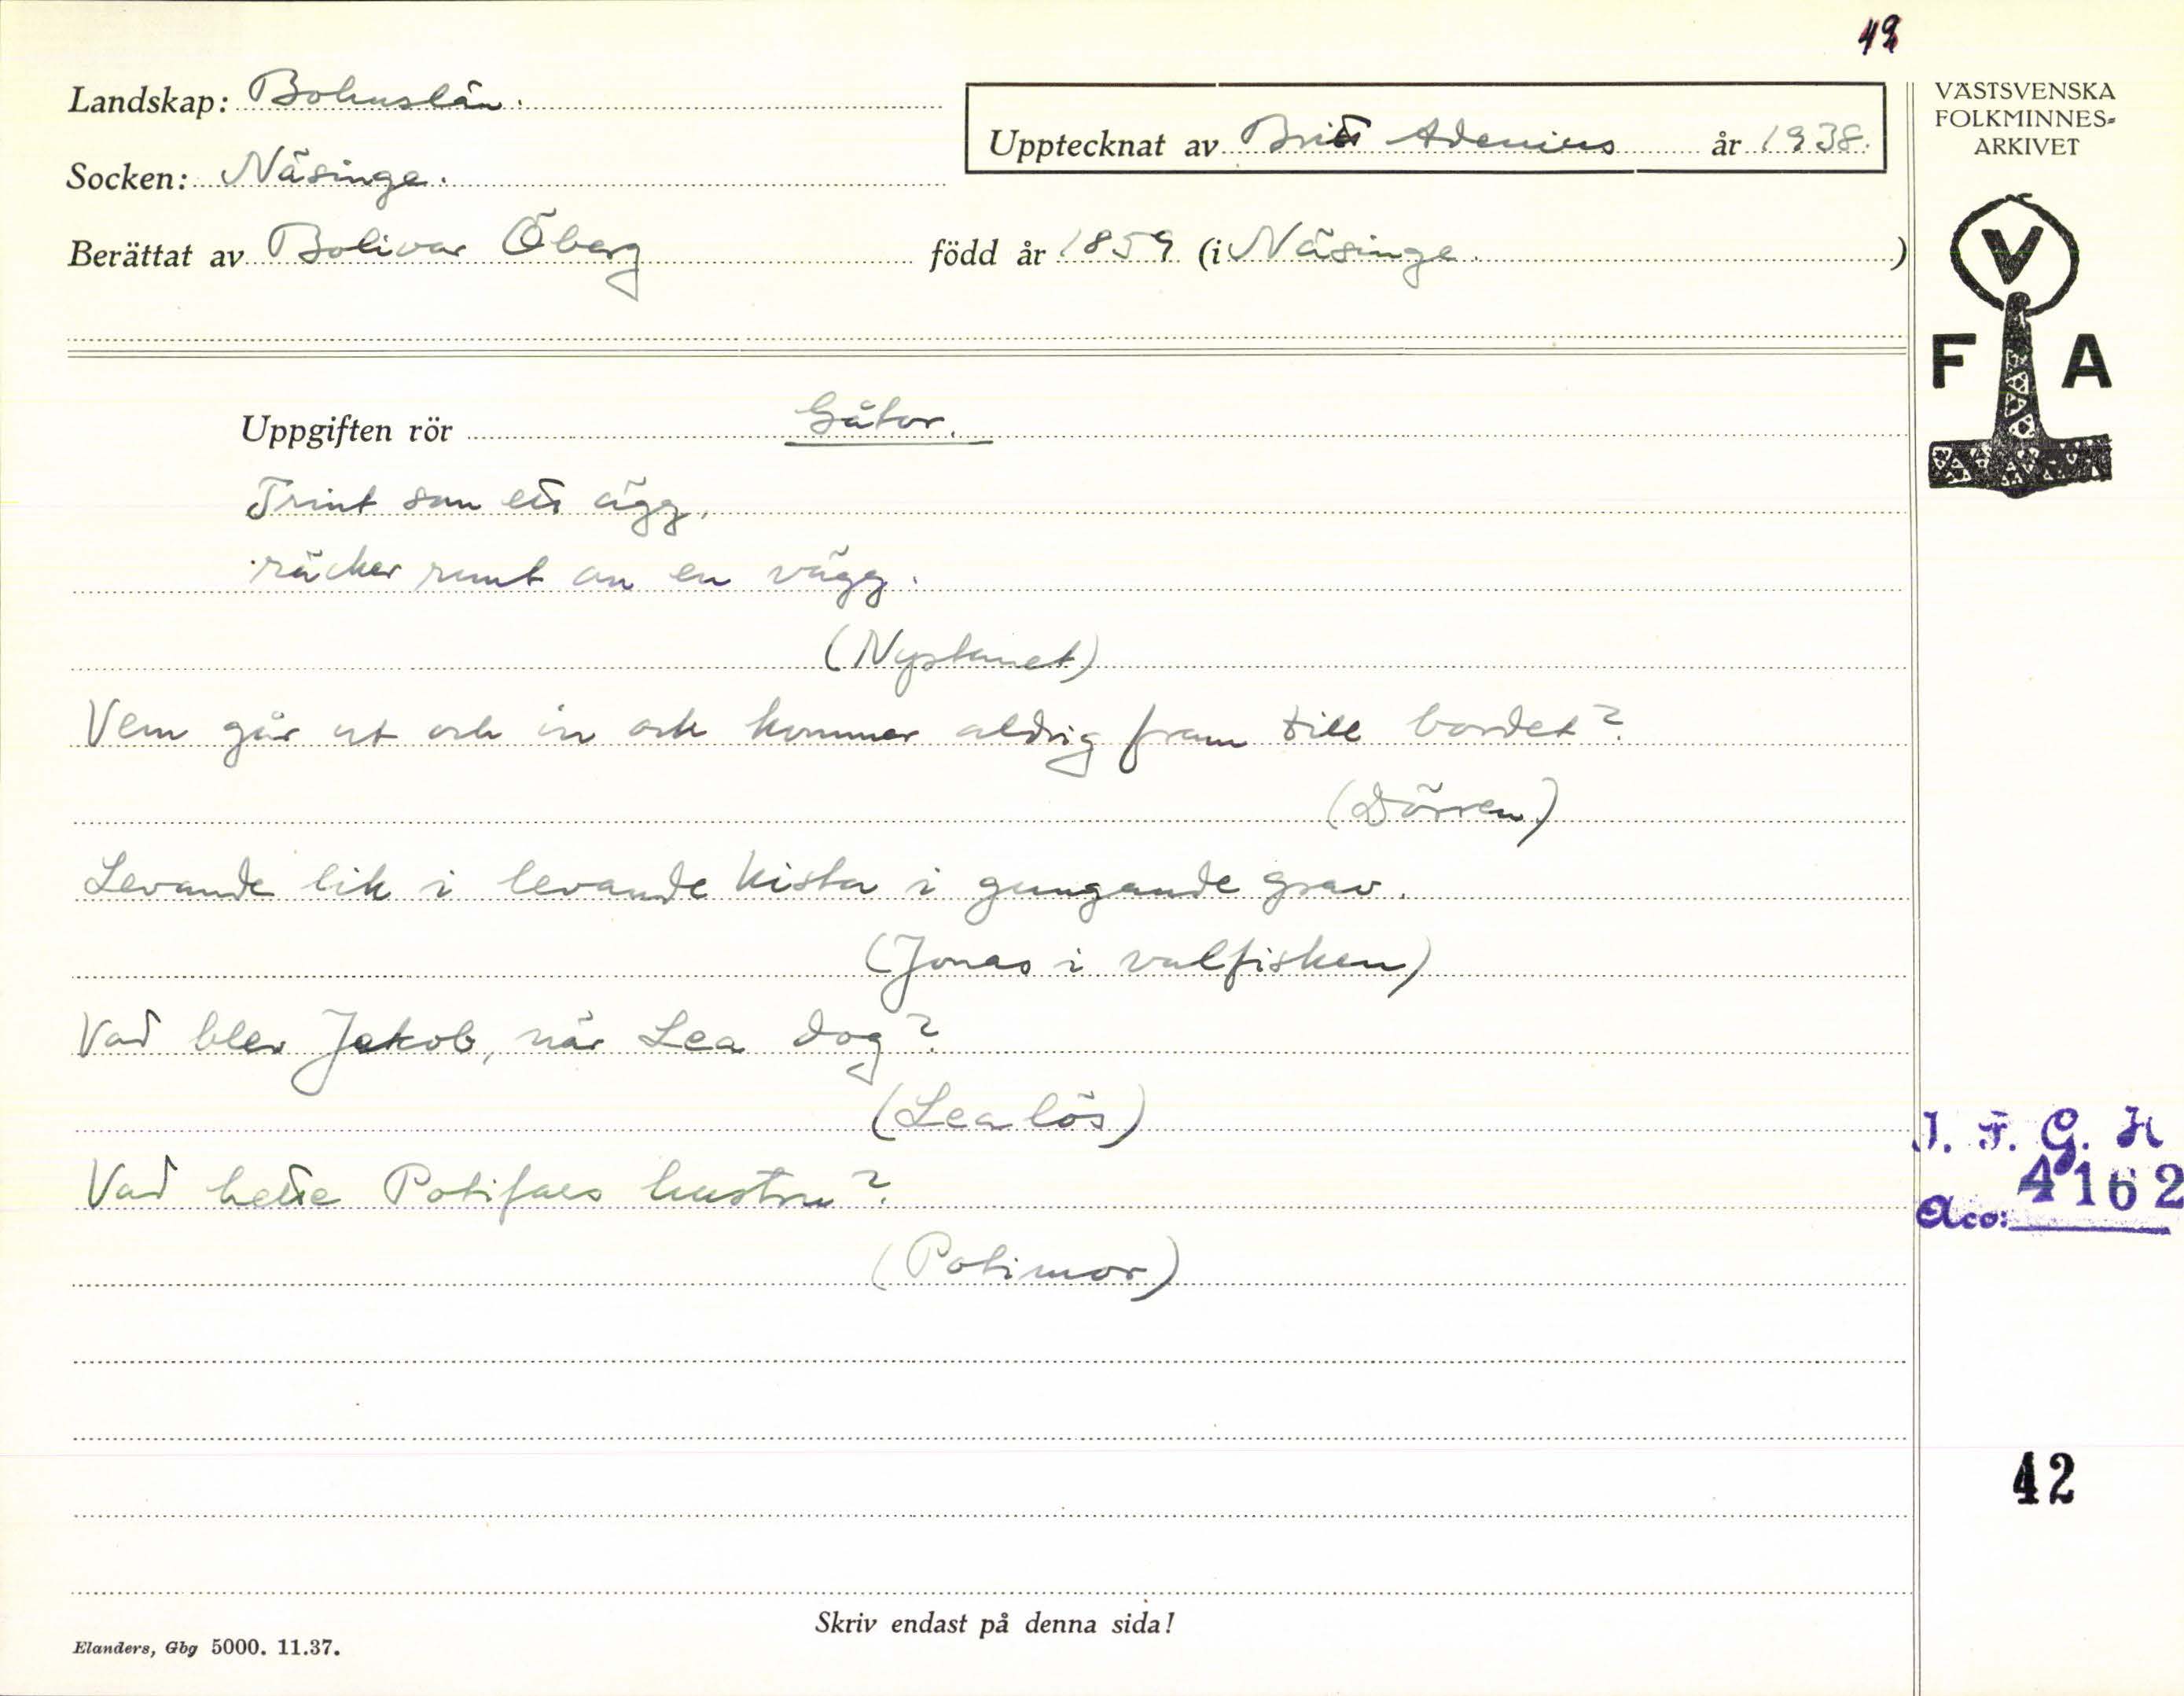 42
Landskap: Bohuslän.
Upptecknat av Britt Adenius år 1938.
Socken: Näsinge.
Berättat av Bolivar Öberg född år 1859 (i Näsinge. )
VÄSTSVENSKA
FOLKMINNES-
ARKIVET
V
F A
Uppgiften rör Gåtor.
Trint som ett ägg,
räcker runt om en vägg.
(Nystanet)
Vem går ut och in och kommer aldrig fram till bordet?
(Dörren)
Levande lik i levande kista i gungande grav.
(Jonas i valfisken)
Vad blev Jakob, när Lea dog?
(Lealös)
Vad hette Potifars hustru?
(Potimor)
I. F. G. H
4162
Acc:
42
Skriv endast på denna sida!
Elanders, Gbg 5000. 11.37.